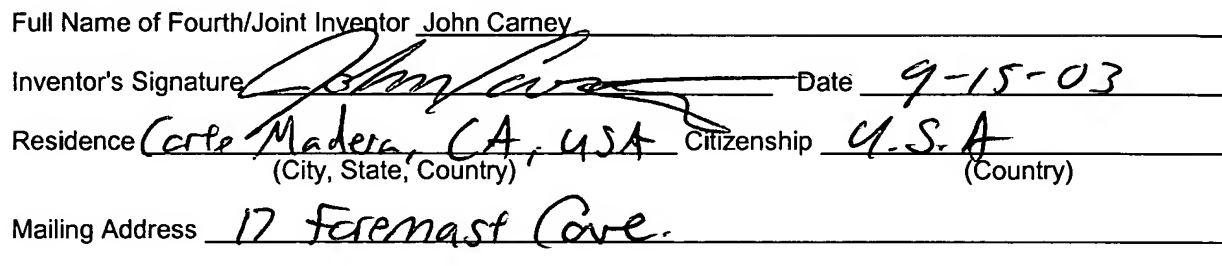 Full Name of Fourth/Joint Inventor John Carney
Inventor's Signature John Carney Date 9-15-03
Residence Corte Madera, CA, USA Citizenship U.S.A
(City, State, Country) (Country)
Mailing Address 17 Foremast Cove.